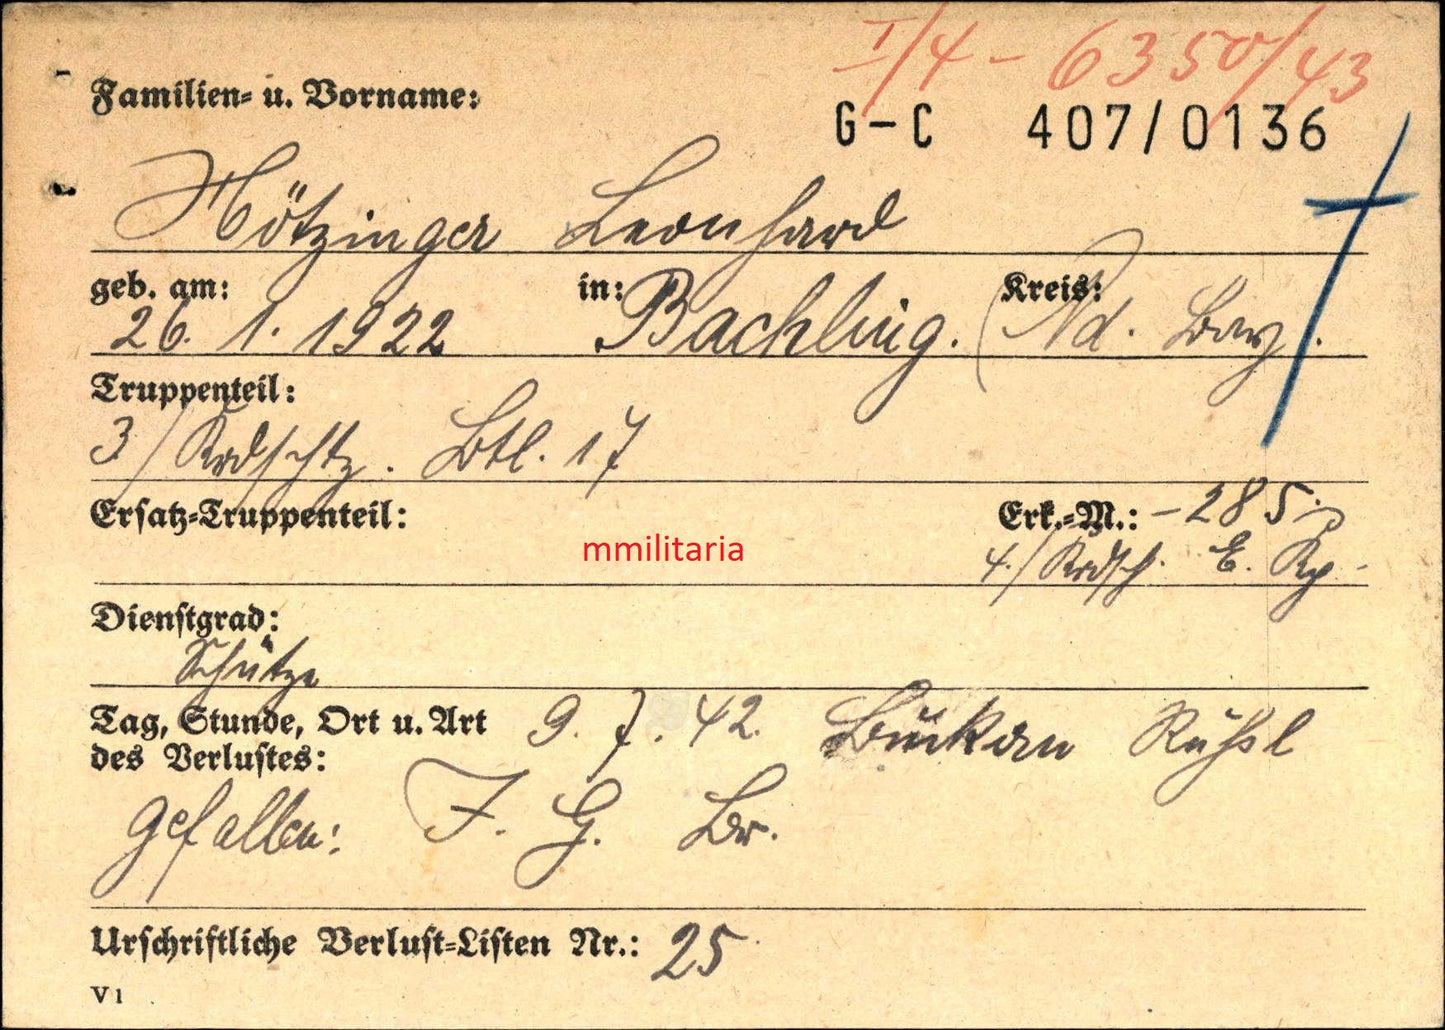 I/4 - 6350/43
Familien- u. Vorname:
G-C 407/0136
Hötzinger Leonhard
geb. am: in: Kreis:
26. 1. 1922 Bachling. (Nd. Bay.
Truppenteil:
3/Krdschtz. Btl. 17
Ersatz-Truppenteil: Erk.-M.: -285-
mmilitaria
4./Krdsch. E. Kp.
Dienstgrad:
Schütze
Tag, Stunde, Ort u. Art 9. 7. 42.
des Verlustes:
gefallen: J. G. Br.
Urschriftliche Verlust-Listen Nr.: 25
V1